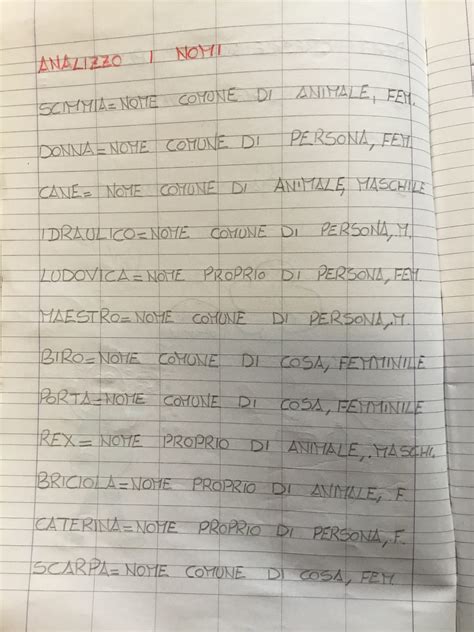 ANALIZZO I NOMI
SCIMMIA=NOME COMUNE DI ANIMALE, FEM.
DONNA=NOME COMUNE DI PERSONA, FEM.
CANE= NOME COMUNE DI ANIMALE, MASCHILE
IDRAULICO=NOME COMUNE DI PERSONA, M.
LUDOVICA=NOME PROPRIO DI PERSONA, FEM.
MAESTRO=NOME COMUNE DI PERSONA, M.
BIRO=NOME COMUNE DI COSA, FEMMINILE
PORTA=NOME COMUNE DI COSA, FEMMINILE
REX= NOME PROPRIO DI ANIMALE, MASCHI.
BRICIOLA=NOME PROPRIO DI ANIMALE, F
CATERINA=NOME PROPRIO DI PERSONA, F.
SCARPA=NOME COMUNE DI COSA, FEM.